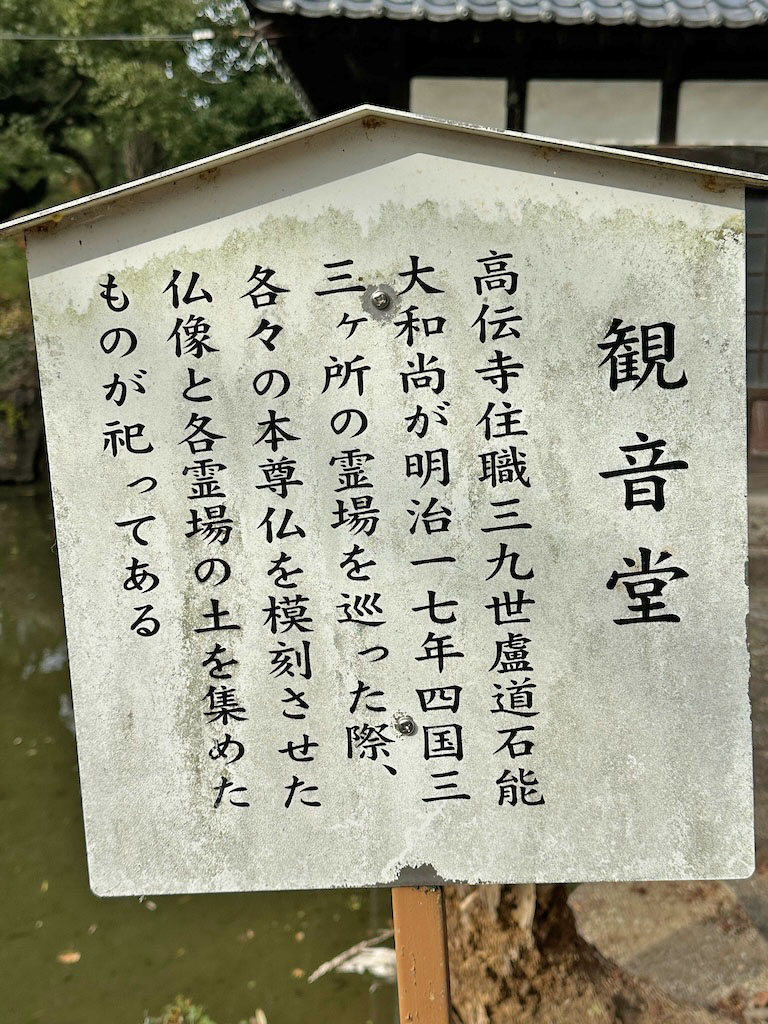 観音堂
高伝寺住職三九世盧道石能
大和尚が明治一七年四国三
三ヶ所の霊場を巡った際、
各々の本尊仏を模刻させた
仏像と各霊場の土を集めた
ものが祀ってある